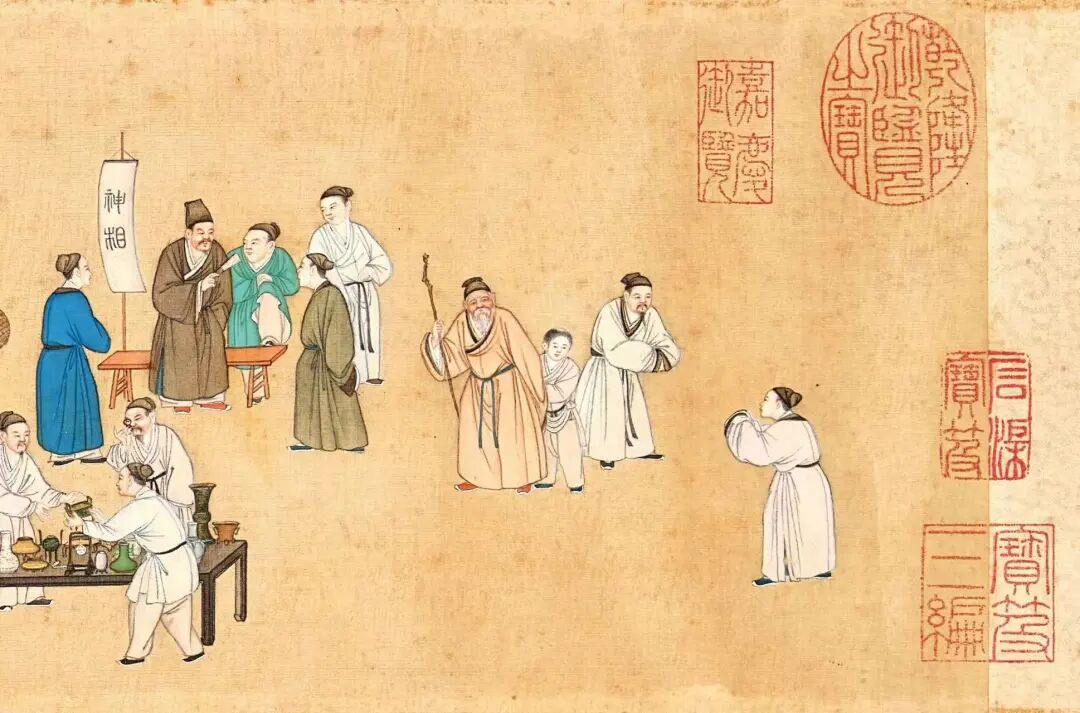 乾隆
御覽
之寶
嘉慶
御覽
石渠
寶笈
寶笈
三編
神相